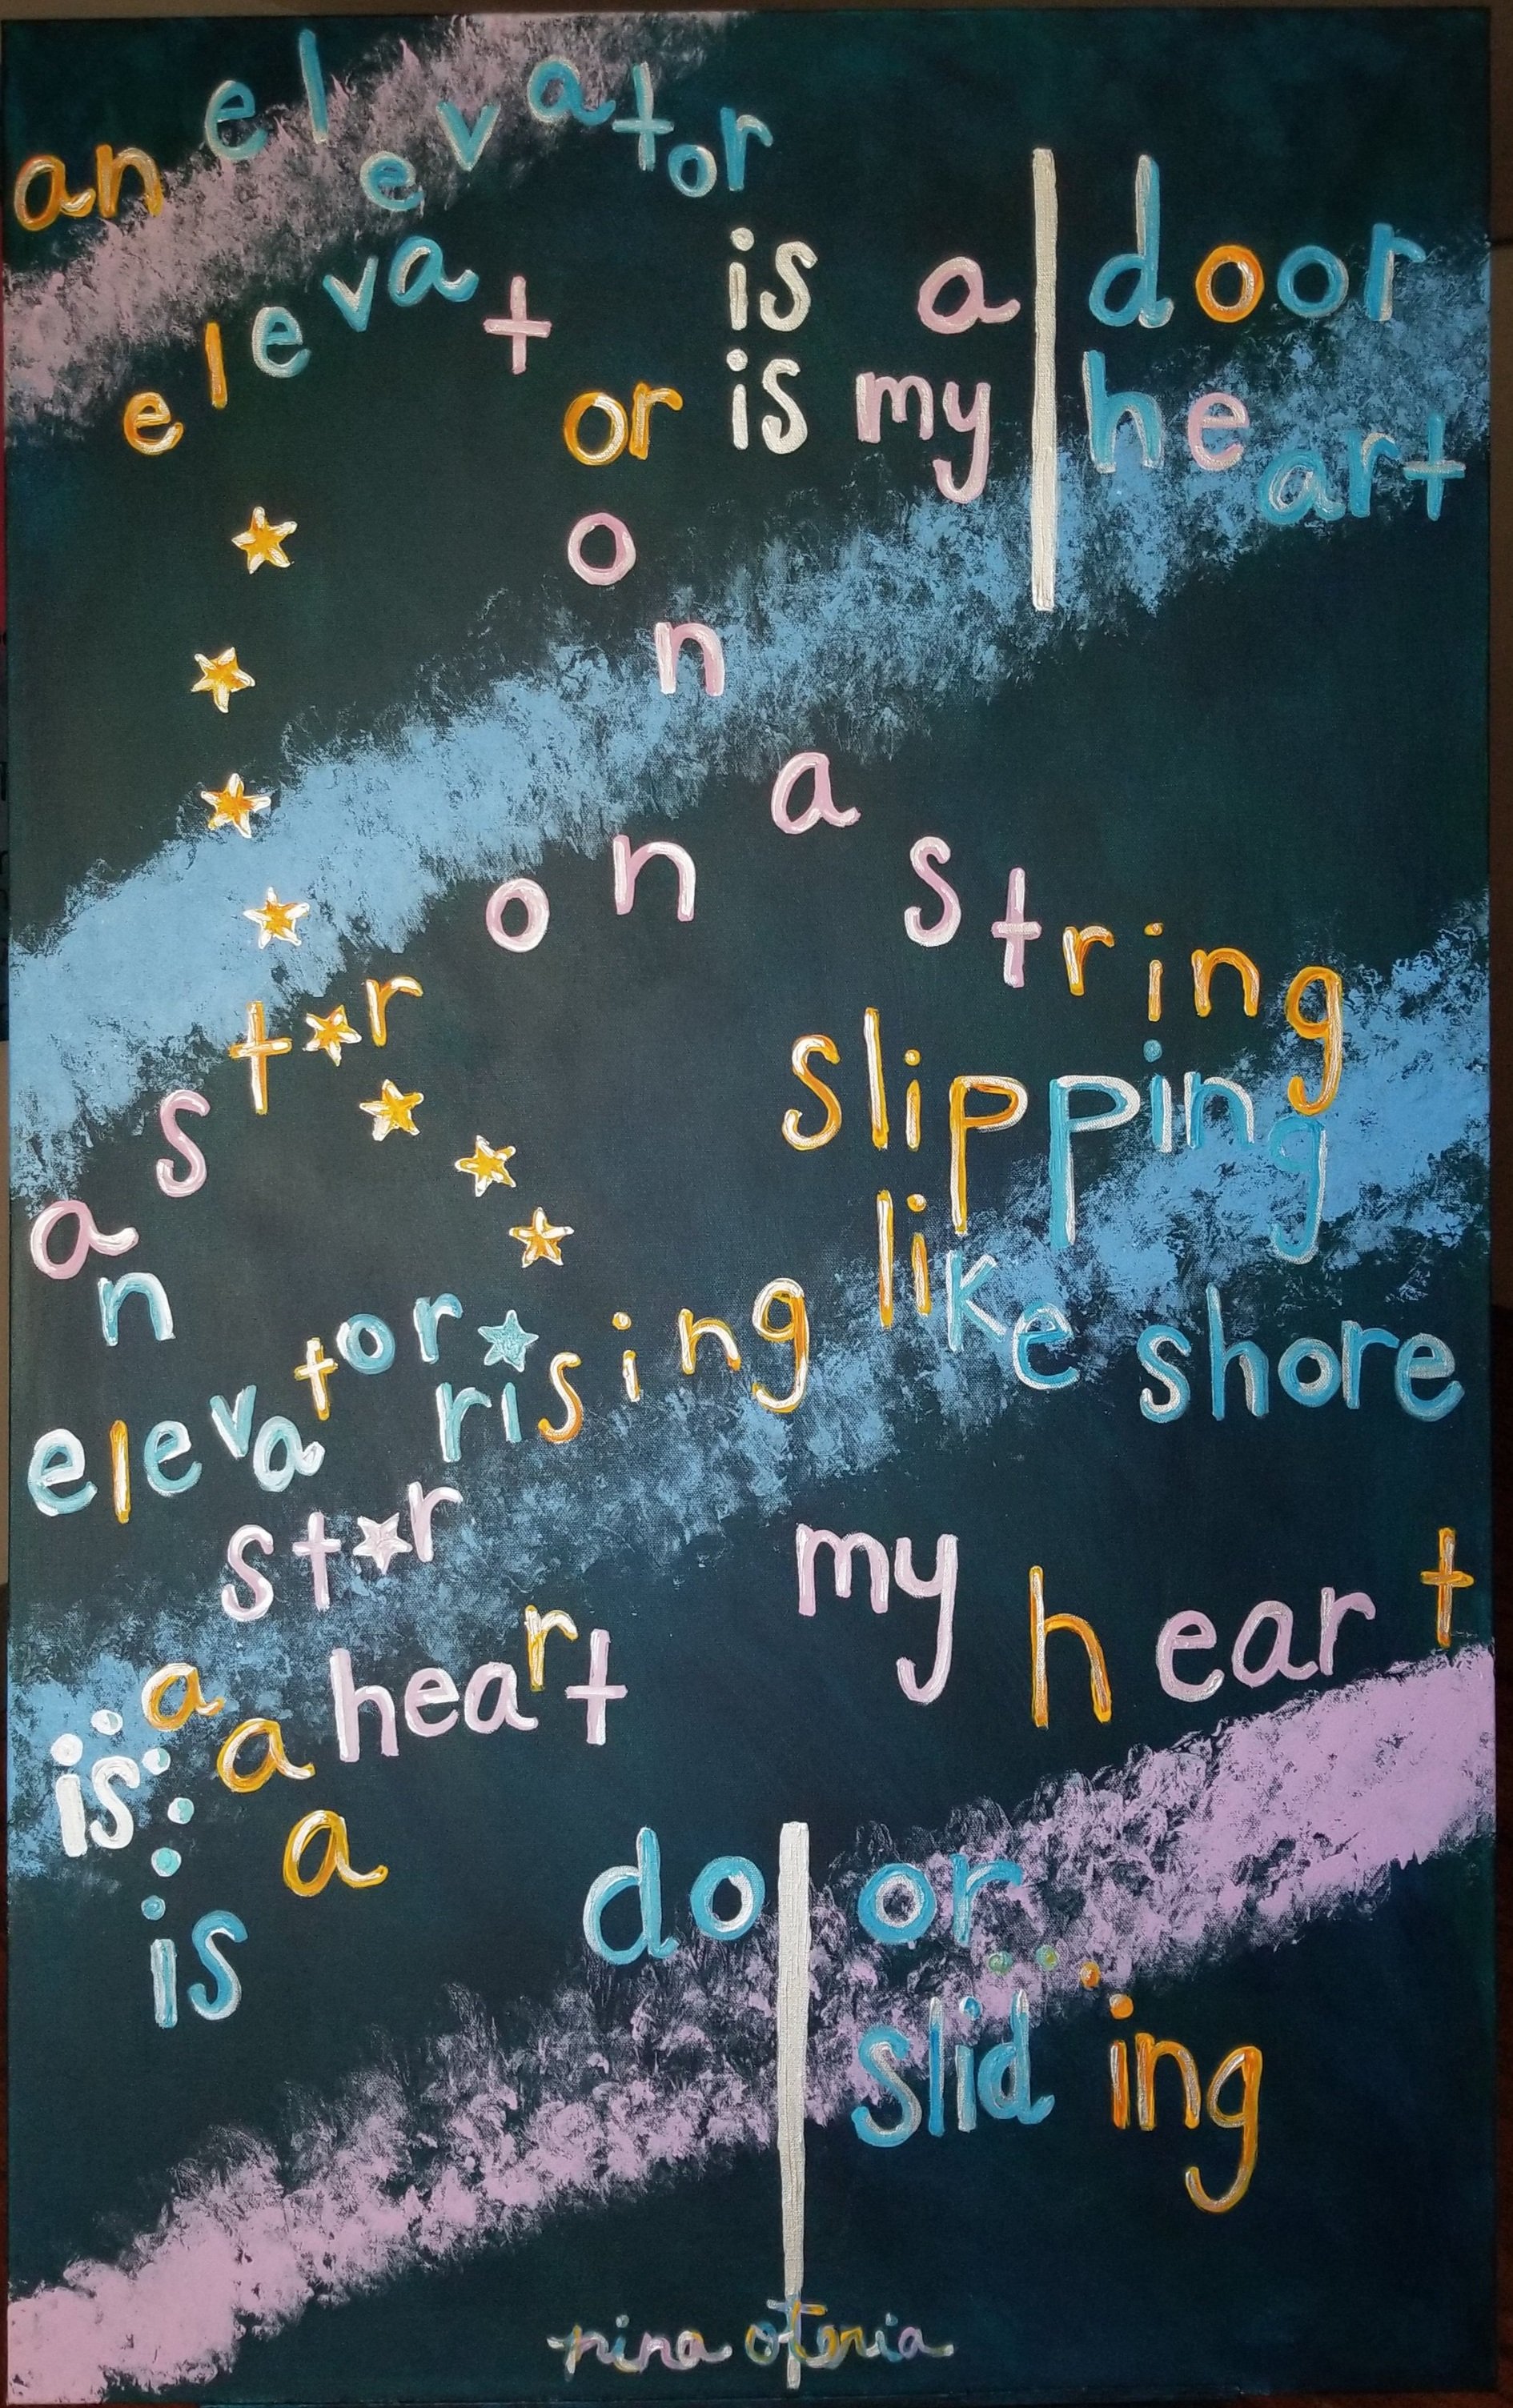 an elevator
is a door
elevator is my heart
on
a
on string
star slipping
a
n like shore
elevator rising
star
my heart
a heart
is a
a
door
is
sliding
nina oteria